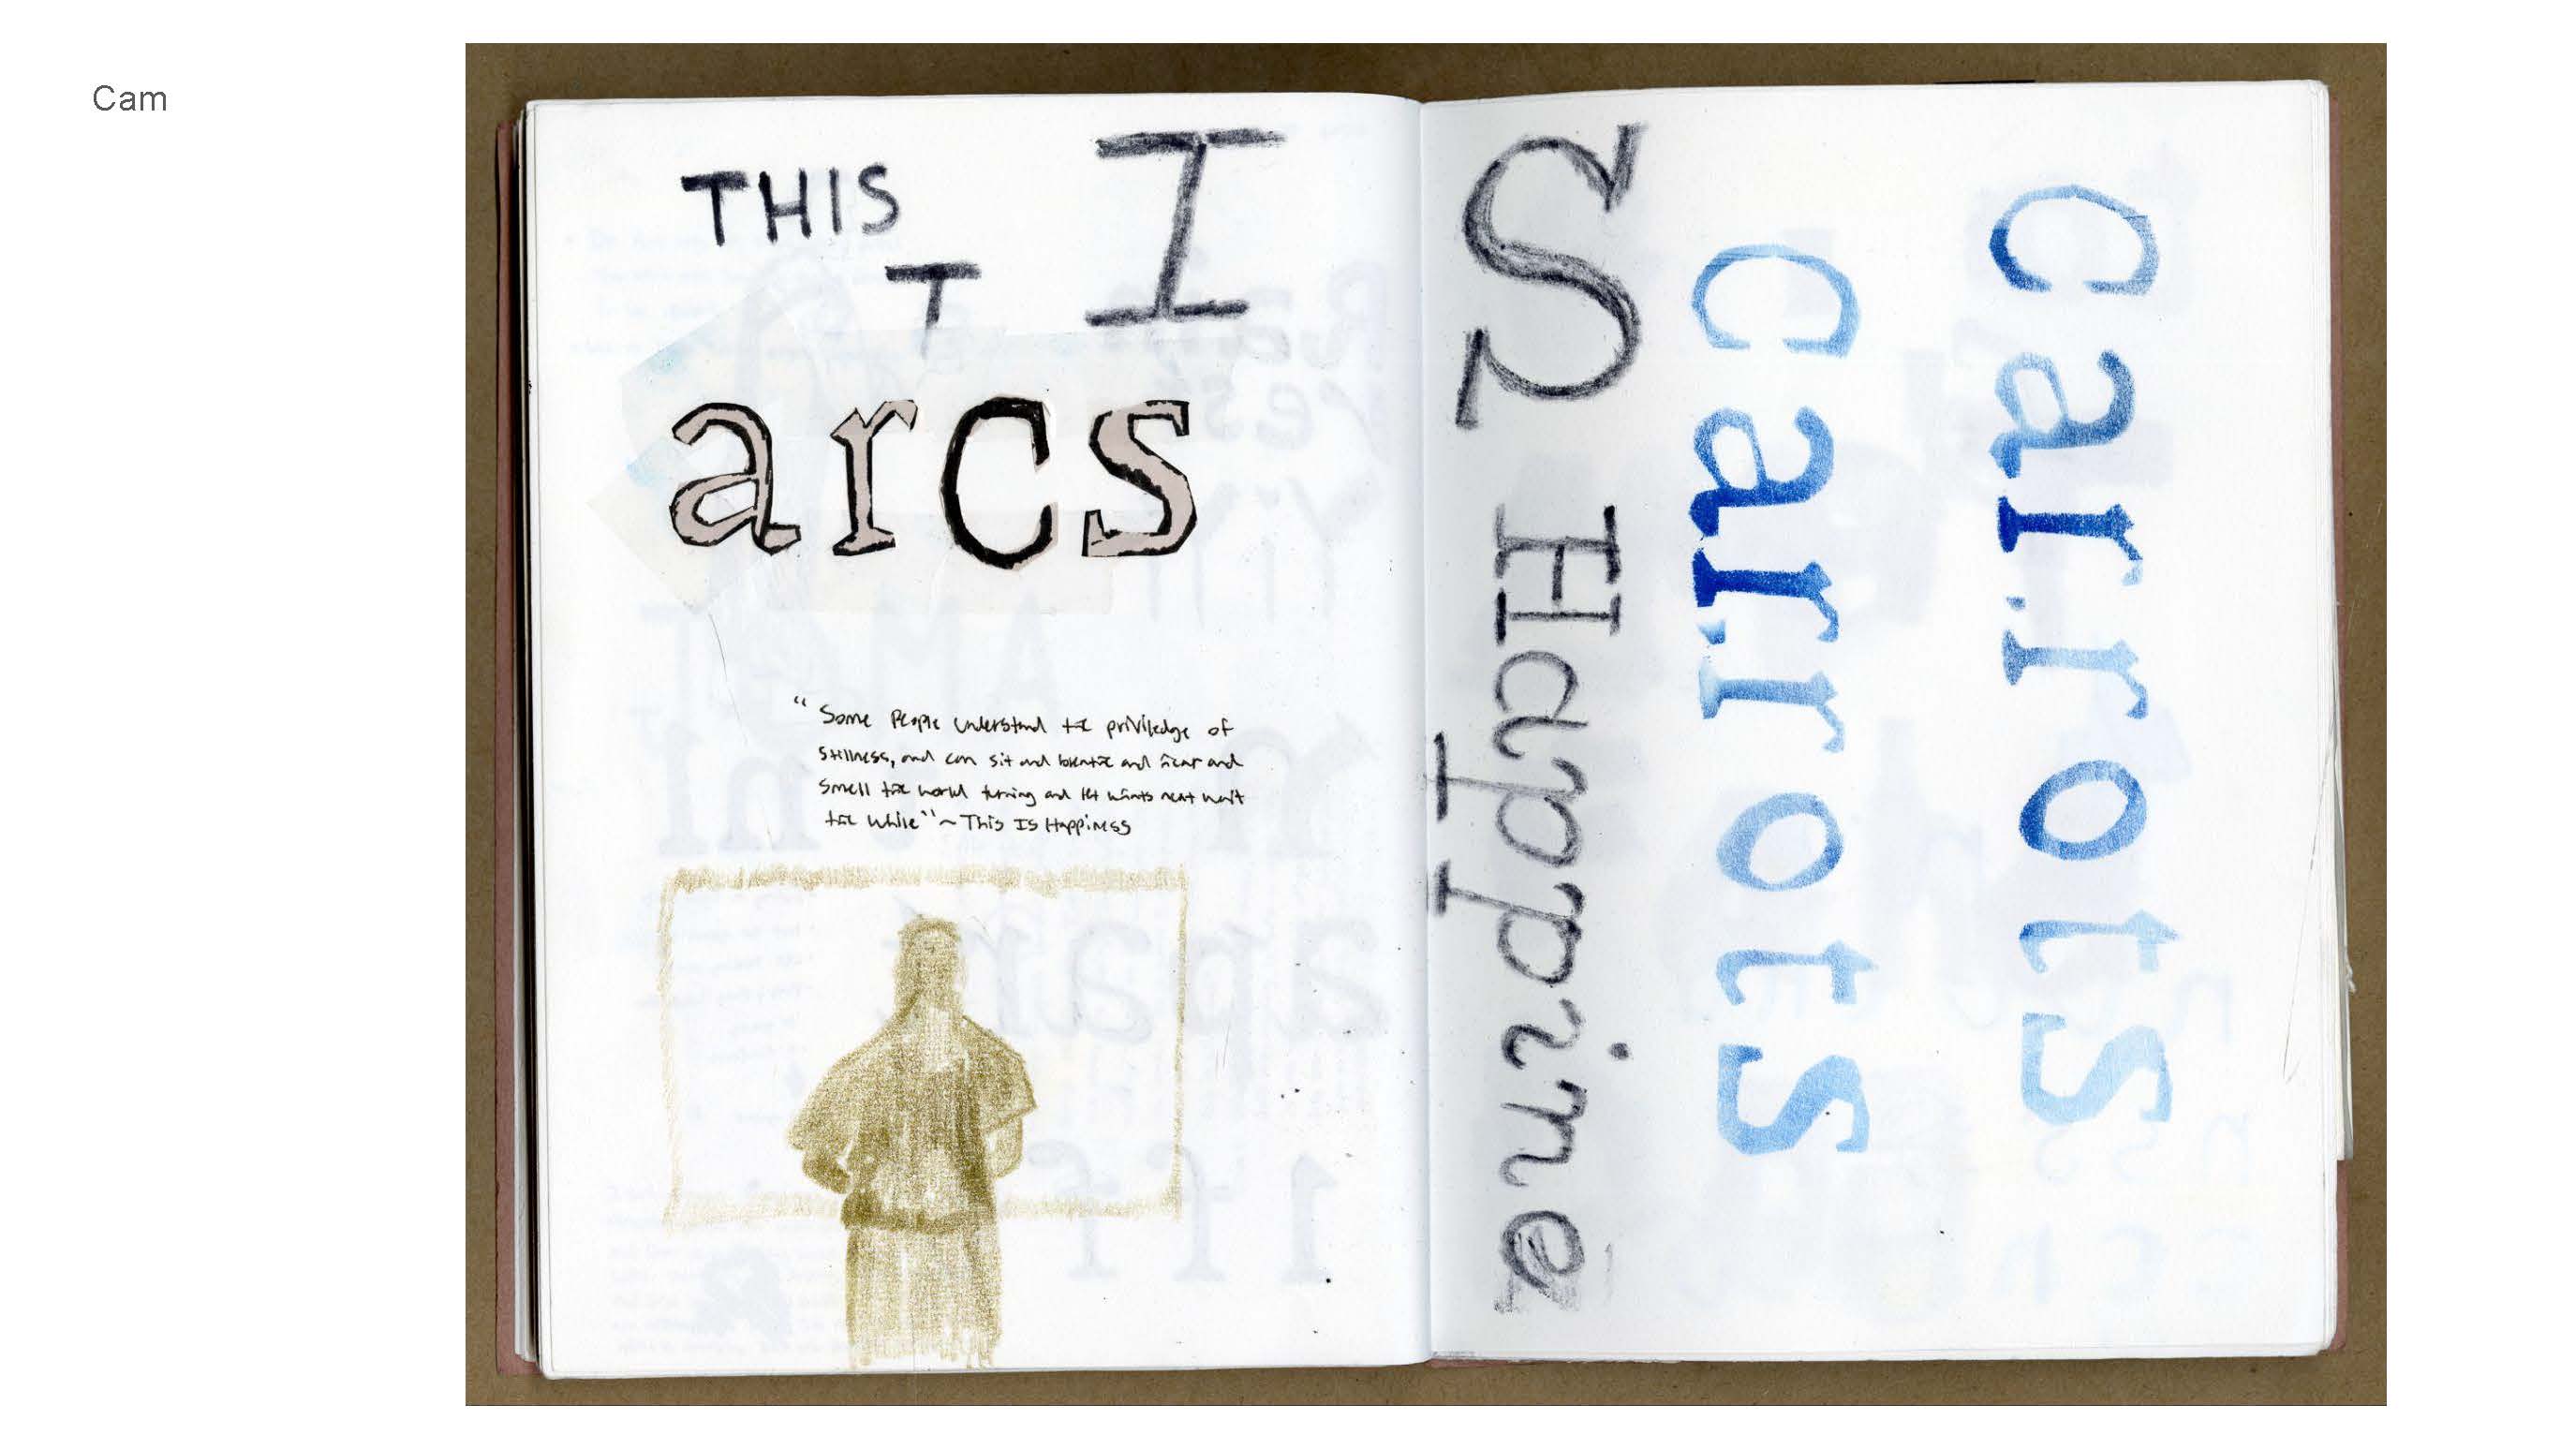 Cam
THIS
T
I
arcs
“Some People understand the priviledge of
stillness, and can sit and breathe and hear and
smell the world turning and let whats next wait
the while” ~ This Is Happiness
S Happine
Carrots
Carrots